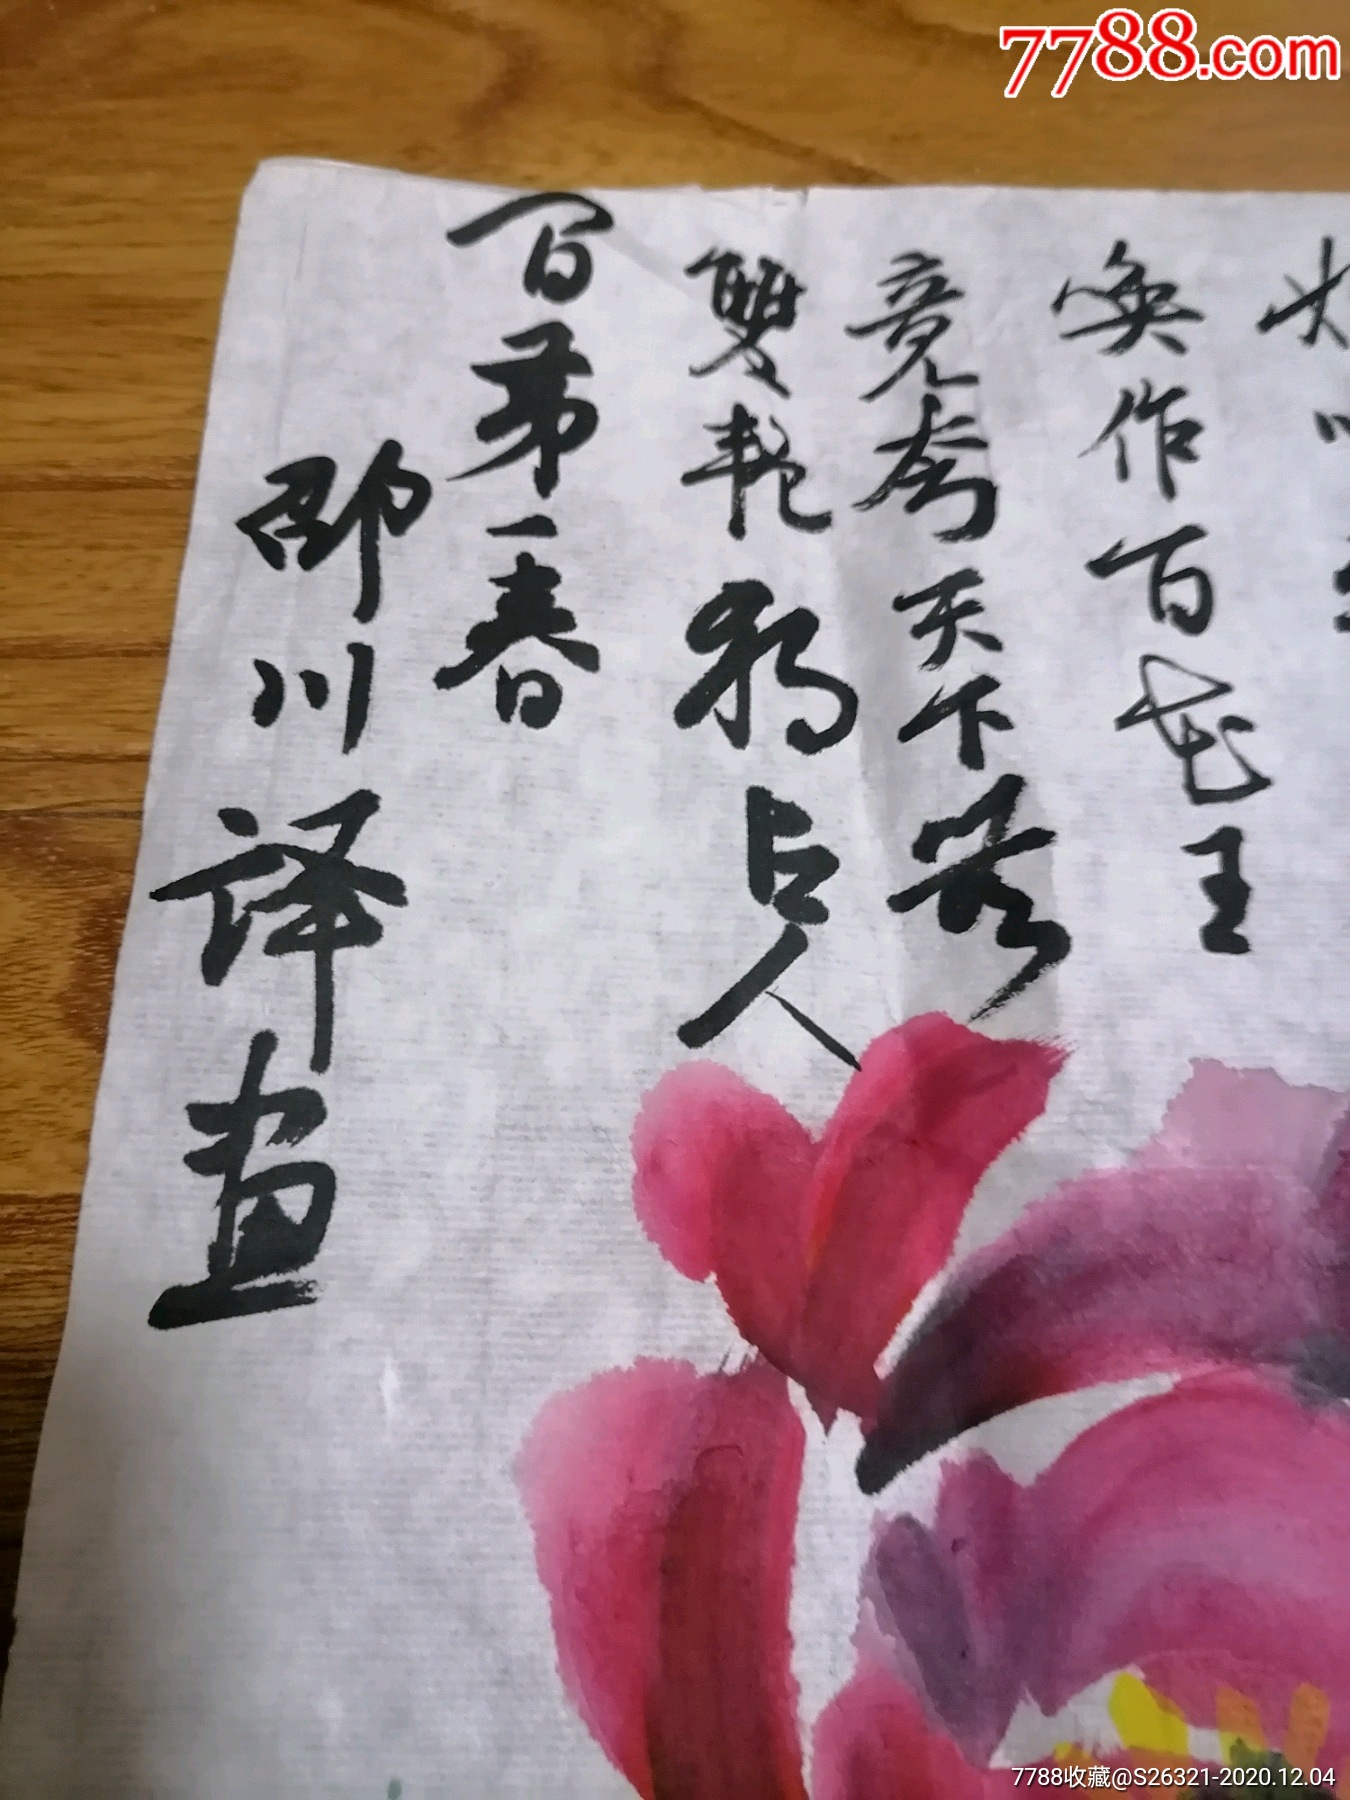 7788.com
唤作百花王
竞夸天下無
雙艳独占人
百第一春
邵川译画
7788收藏@S26321-2020.12.04